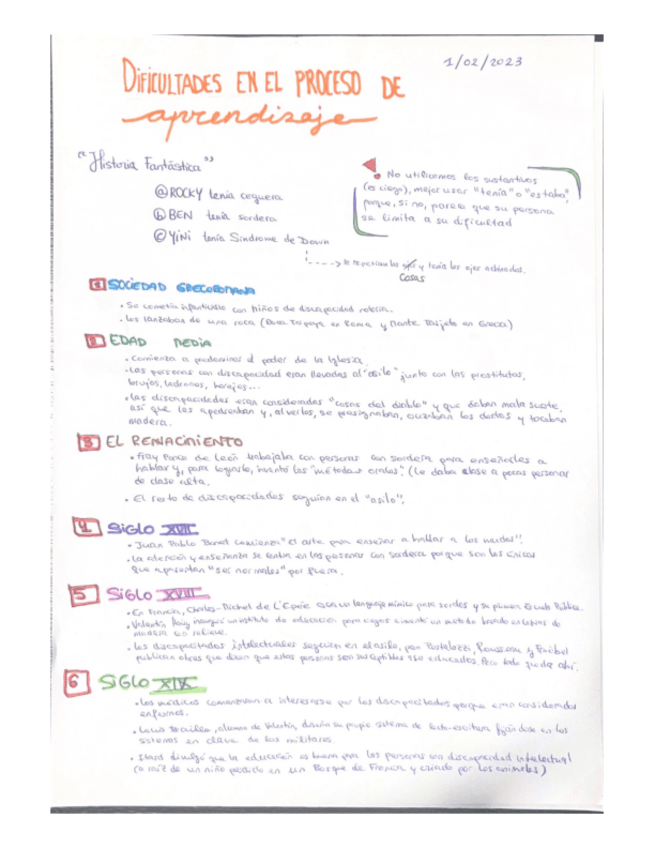 1/02/2023
DIFICULTADES EN EL PROCESO DE
aprendizaje
"Historia Fantástica"
ⓐ ROCKY tenía ceguera
ⓑ BEN tenía sordera
ⓒ YINI tenía Síndrome de Down
No utilizamos los sustantivos
(es ciego), mejor usar "tenía" o "estaba",
porque, si no, parece que su persona
se limita a su dificultad
le repetían las y tenía los ojos achinados.
cosas
1 SOCIEDAD GRECORROMANA
• Se cometía infanticidio con niños de discapacidad notoria.
• Les lanzaban de una roca (Roca Tarpeya en Roma y Monte Taigeto en Grecia)
2 EDAD MEDIA
• Comienza a predominar el poder de la Iglesia.
• Las personas con discapacidad eran llevadas al "asilo" junto con las prostitutas,
brujos, ladrones, herejes...
• Las discapacidades eran consideradas "cosas del diablo" y que daban mala suerte,
así que les apedreaban y, al verlos, se presignaban, cruzaban los dedos y tocaban
madera.
3 EL RENACIMIENTO
• Fray Ponce de León trabajaba con personas con sordera para enseñarles a
hablar y, para lograrlo, inventó los "métodos orales". (Le daba clase a pocas personas
de clase alta.
• El resto de discapacidades seguían en el "asilo".
4 SIGLO XVII
• Juan Pablo Bonet comienza "el arte para enseñar a hablar a los mudos".
• La atención y enseñanza se centra en las personas con sordera porque son los únicos
que aparentan "ser normales" por fuera.
5 SIGLO XVIII
• En Francia, Charles-Michel de L'Epée crea un lenguaje mímico para sordos y su primera Escuela Pública.
• Valentín Haüy inauguró un instituto de educación para ciegos e inventó un método basado en letras de
madera en relieve.
• Los discapacitados intelectuales seguían en el asilo, pero Pestalozzi, Rousseau y Fröbel
publican obras que dicen que estas personas son susceptibles a ser educadas. Pero todo queda ahí.
6 SIGLO XIX
• Los médicos comenzaron a interesarse por los discapacitados porque eran considerados
enfermos.
• Louis Braille, alumno de Valentín, diseña su propio sistema de lecto-escritura fijándose en los
sistemas en clave de los militares.
• Itard divulgó que la educación es buena para las personas con discapacidad intelectual
(a raíz de un niño perdido en un Bosque de Francia y criado por los animales)